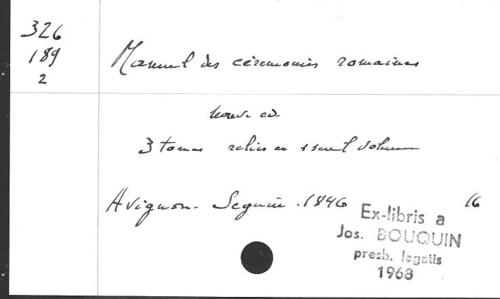 326
189
2
Manuel des cérémonies romaines
nouv. ed.
3 tomes reliés en 1 seul volume
Avignon - Seguin - 1846 16
Ex-libris a
Jos. BOUQUIN
presb. legatis
1968